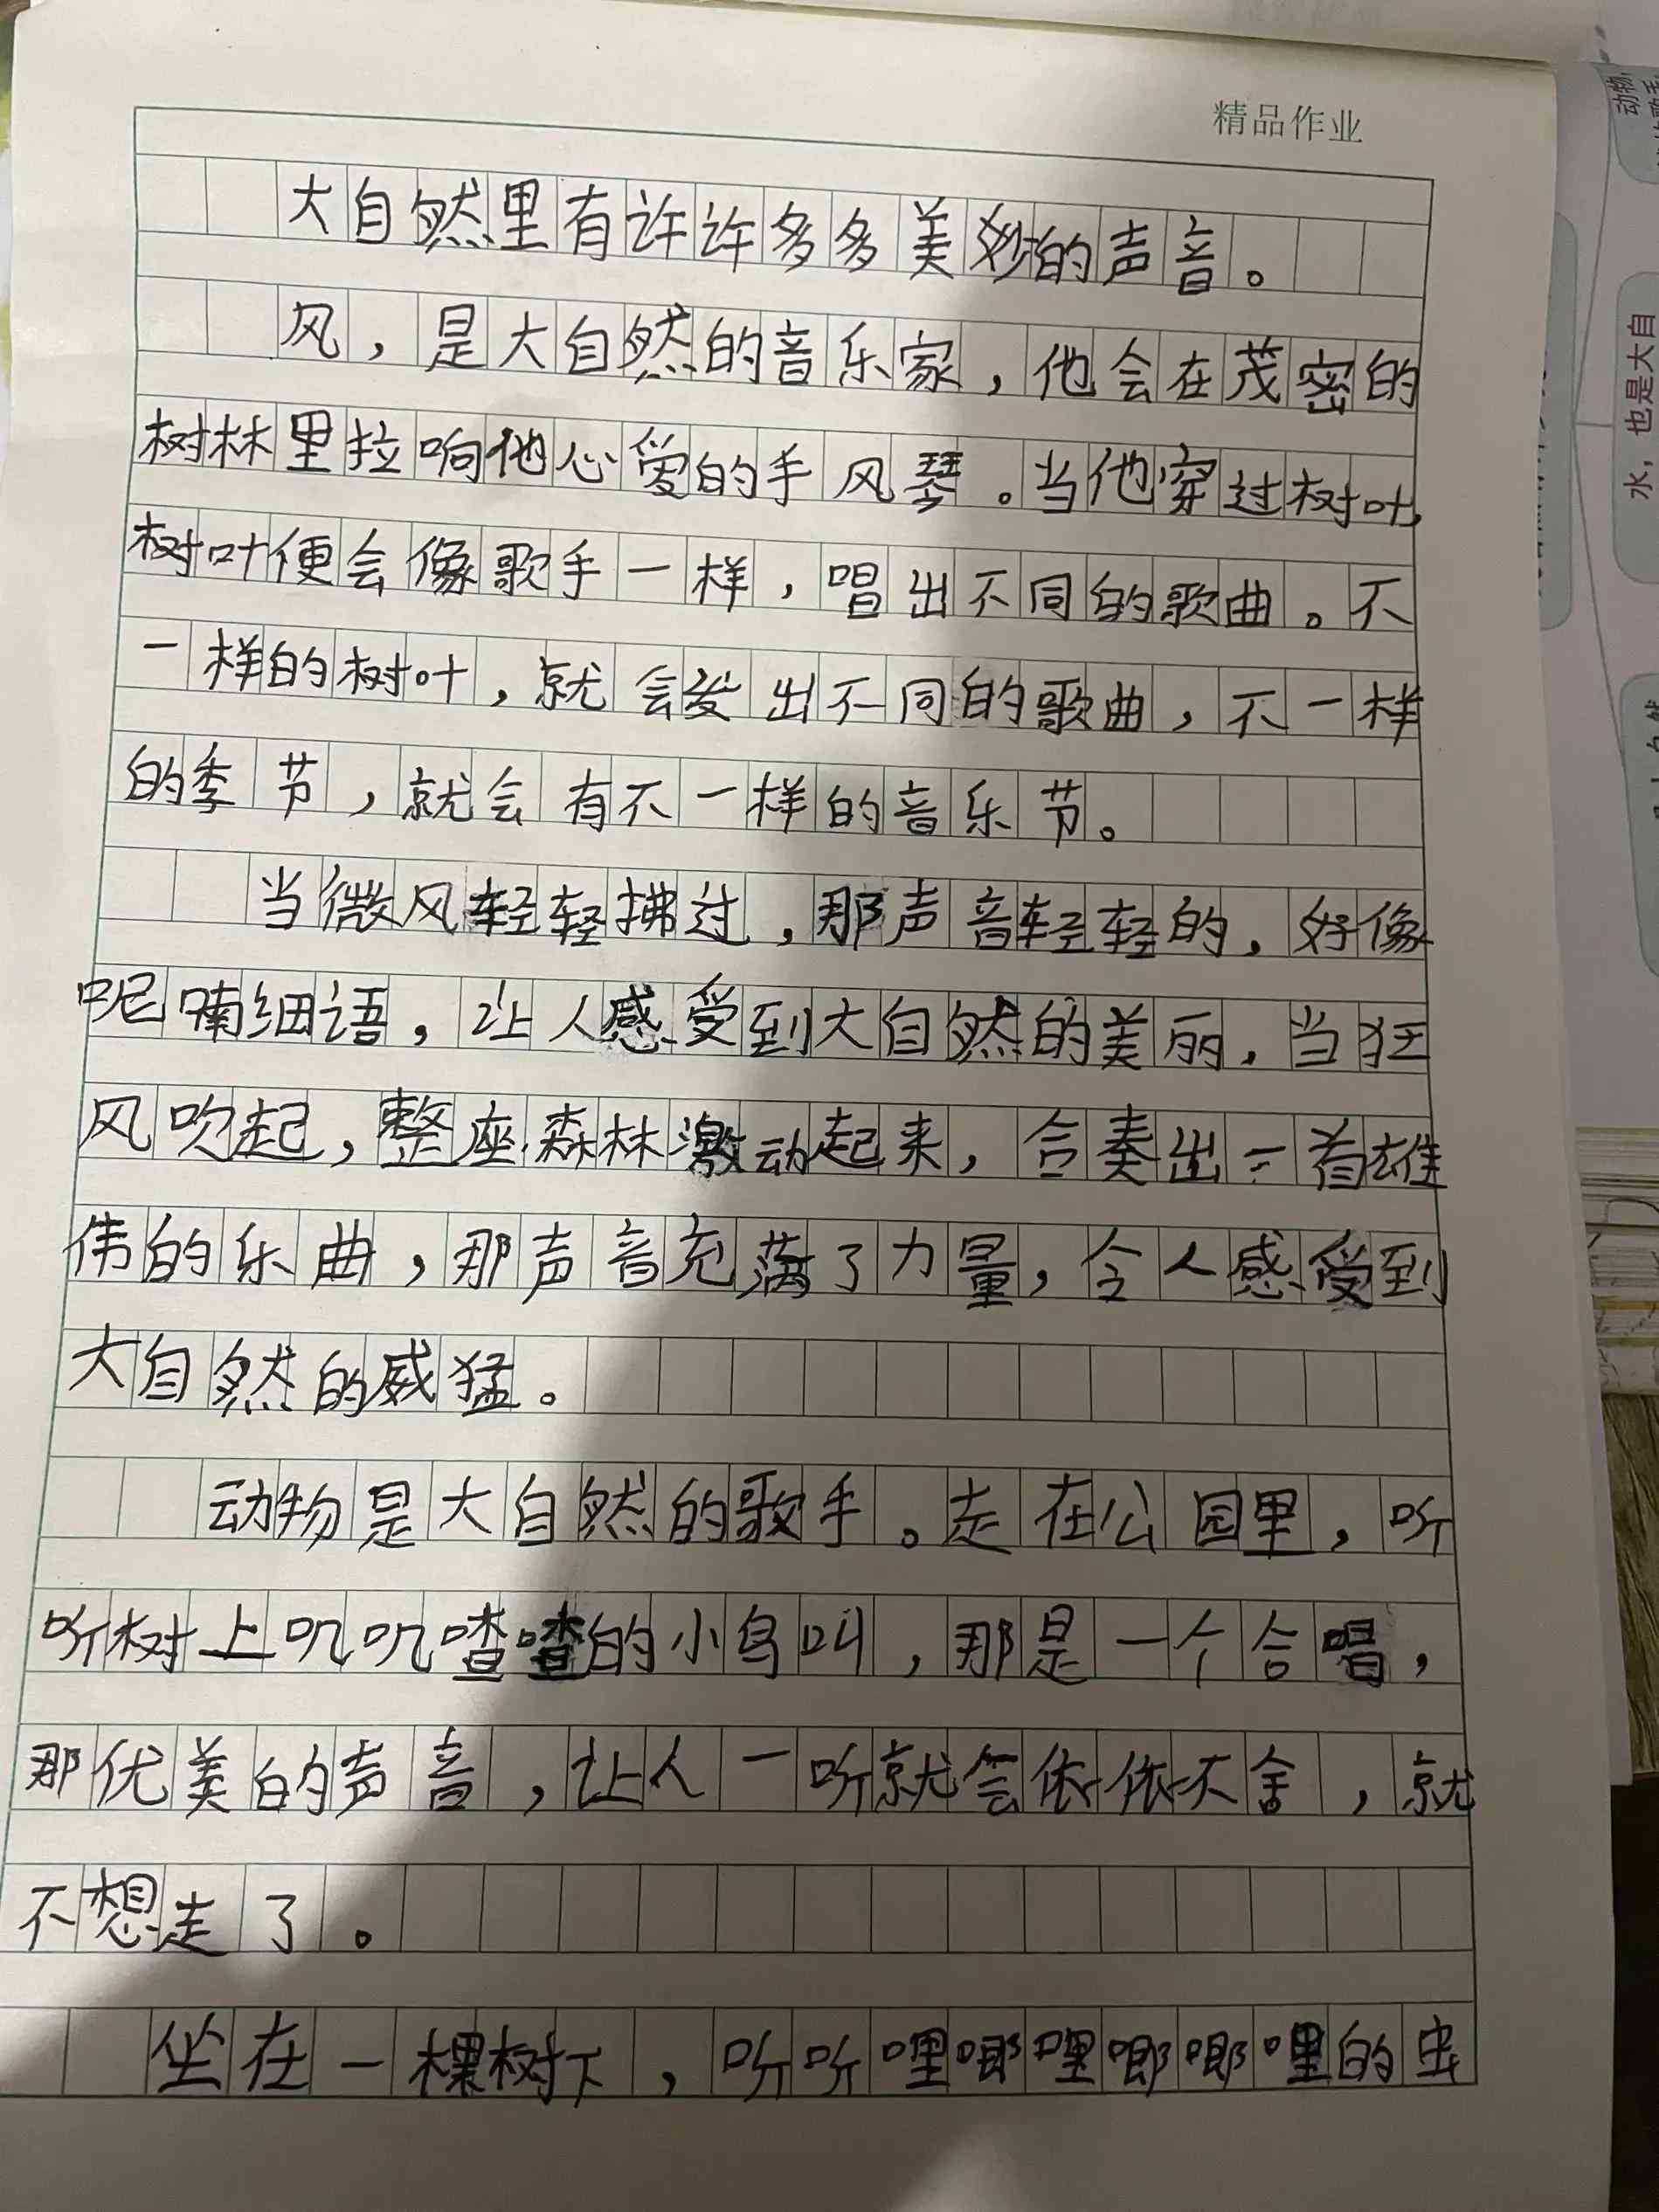 精品作业
大自然里有许许多多美妙的声音。
风，是大自然的音乐家，他会在茂密的
树林里拉响他心爱的手风琴。当他穿过树叶，
树叶便会像歌手一样，唱出不同的歌曲。不
一样的树叶，就会发出不同的歌曲，不一样
的季节，就会有不一样的音乐节。
当微风轻轻拂过，那声音轻轻的，好像
呢喃细语，让人感受到大自然的美丽，当狂
风吹起，整座森林激动起来，合奏出一首雄
伟的乐曲，那声音充满了力量，令人感受到
大自然的威猛。
动物是大自然的歌手。走在公园里，听
听树上叽叽喳喳的小鸟叫，那是一个合唱，
那优美的声音，让人一听就会依依不舍，就
不想走了。
坐在一棵树下，听听哩唧哩唧唧哩的虫
动物，
水，也是大自